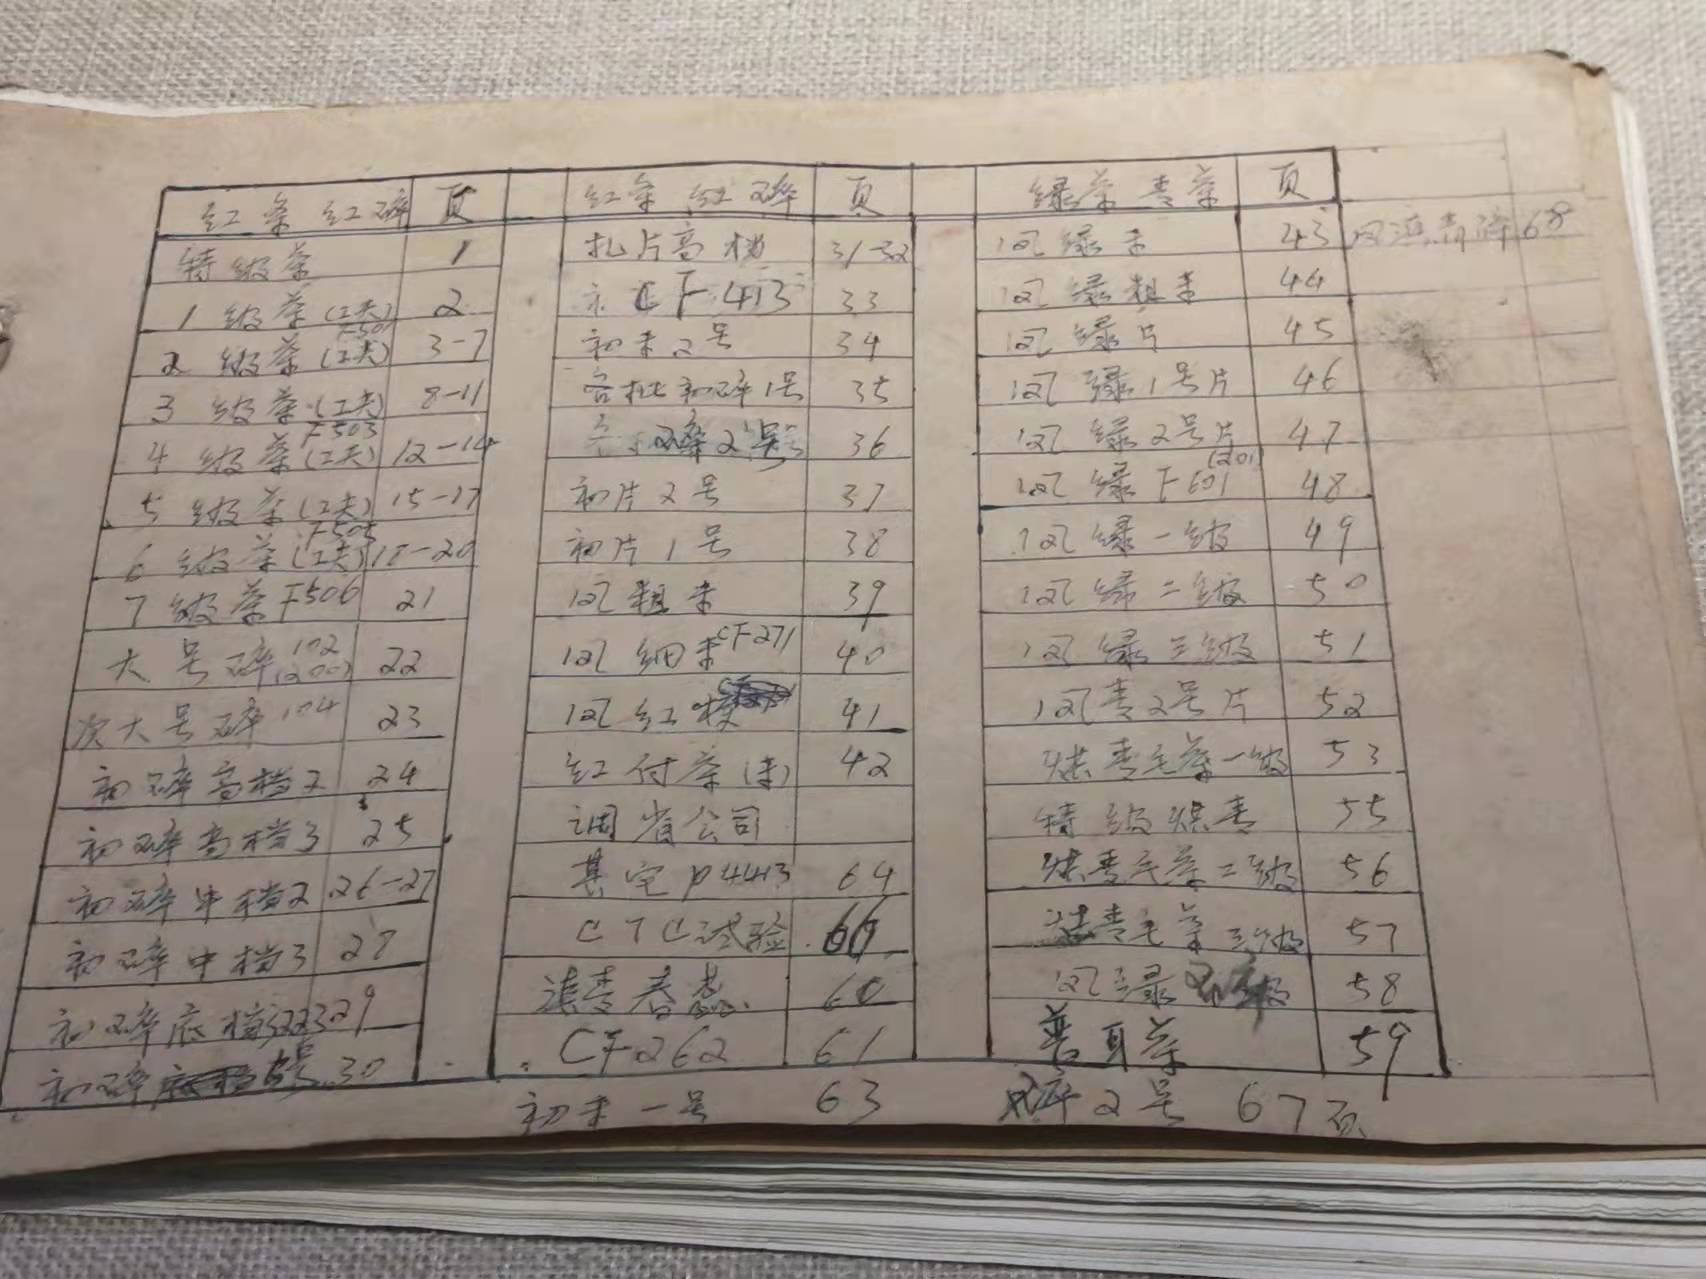 红茶 红碎 页 红茶 红碎 页 绿茶 青茶 页
特级茶 1 扎片高档 31-32 风绿末 43 68
1 级茶(工夫) 2 CF 413 33 风绿粗末 44
2 级茶(工夫) F501 3-7 初末2号 34 风绿片 45
3 级茶(工夫) 8-11 各批初碎1号 35 风绿1号片 46
4 级茶(工夫) F503 12-14 碎2号 36 风绿2号片 47
5 级茶(工夫) 15-17 初片2号 37 风绿F601 (201) 48
6 级茶(工夫) F505 18-20 初片1号 38 风绿一级 49
7 级茶F506 21 风粗末 39 风绿二级 50
大号碎 102 (200) 22 风细末CF271 40 风绿三级 51
次大号碎104 23 风红梗 41 风青2号片 52
初碎高档2 24 红付茶(末) 42 烘青毛茶一级 53
初碎高档3 25 调省公司 特级烘青 55
初碎中档2 26-27 其它P4413 64 烘青毛茶二级 56
初碎中档3 28 CTC试验 烘青毛茶三级 57
初碎底档 29 滇青春蕊 60 风绿 级 58
初碎 号 30 CF262 61 普耳茶 59
初末一号 63 碎2号 67页